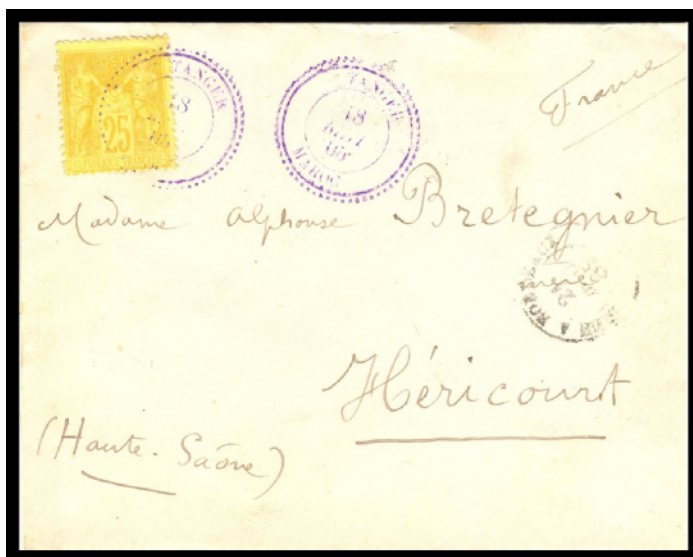 25
TANGER
18
MAROC
TANGER
18
MAROC
France
Madame Alphonse Bretegnier
mère
Héricourt
(Haute-Saône)